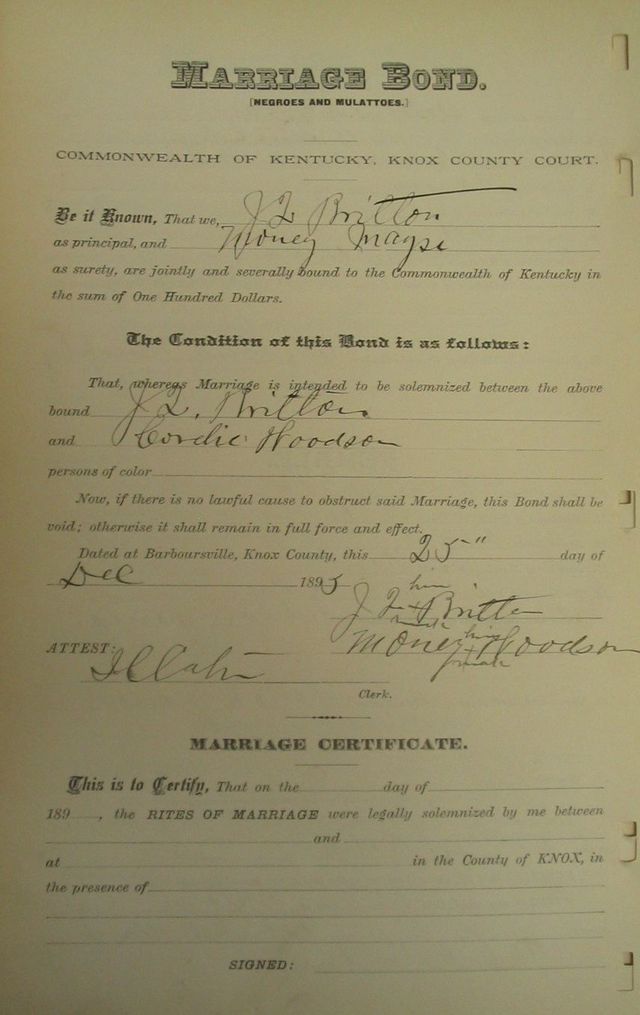 MARRIAGE BOND.
[NEGROES AND MULATTOES.]
COMMONWEALTH OF KENTUCKY, KNOX COUNTY COURT.
Be it Known, That we, J L Britton
as principal, and Money Mayse
as surety, are jointly and severally bound to the Commonwealth of Kentucky in
the sum of One Hundred Dollars.
The Condition of this Bond is as follows:
That, whereas Marriage is intended to be solemnized between the above
bound J L. Britton
and Cordie Woodson
persons of color
Now, if there is no lawful cause to obstruct said Marriage, this Bond shall be
void; otherwise it shall remain in full force and effect.
Dated at Barboursville, Knox County, this 25" day of
Dec 1895
his
J L + Britton
mark
his
Money + Woodson
mark
ATTEST:
Clerk.
MARRIAGE CERTIFICATE.
This is to Certify, That on the day of
189 , the RITES OF MARRIAGE were legally solemnized by me between
and
at in the County of KNOX, in
the presence of
SIGNED: